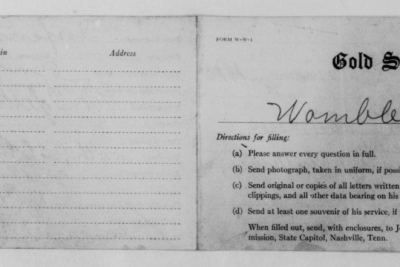 in Address
FORM W-W-1
Gold S
Womble
Directions for filling:
(a) Please answer every question in full.
(b) Send photograph, taken in uniform, if possi
(c) Send original or copies of all letters written
clippings, and all other data bearing on his
(d) Send at least one souvenir of his service, if
When filled out, send, with enclosures, to J
mission, State Capitol, Nashville, Tenn.